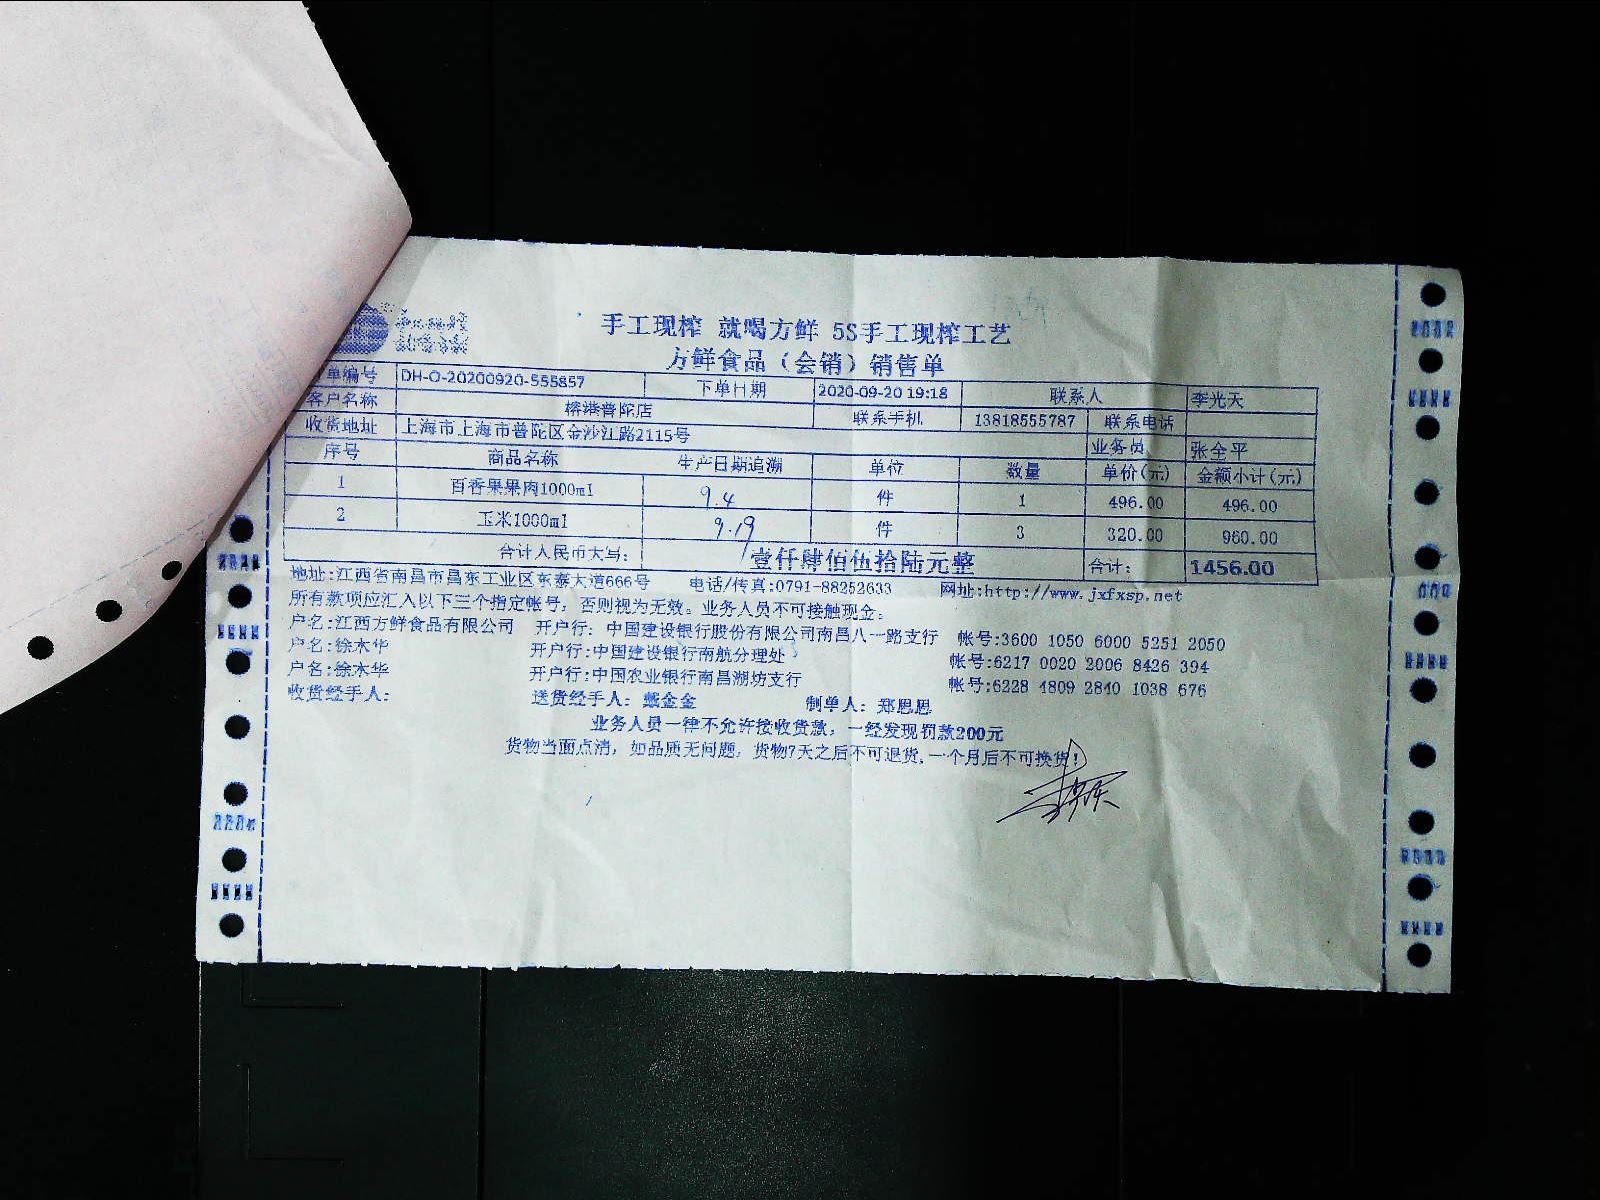 手工现榨 就喝方鲜 5S手工现榨工艺
方鲜食品（会销）销售单
单编号 DH-O-20200920-555857 下单日期 2020-09-20 19:18 联系人 李光天
客户名称 榕港普陀店 联系手机 13818555787 联系电话
收货地址 上海市上海市普陀区金沙江路2115号 业务员 张全平
序号 商品名称 生产日期追溯 单位 数量 单价(元) 金额小计(元)
1 百香果果肉1000ml 9.4 件 1 496.00 496.00
2 玉米1000ml 9.19 件 3 320.00 960.00
合计人民币大写： 壹仟肆佰伍拾陆元整 合计： 1456.00
地址:江西省南昌市昌东工业区东泰大道666号 电话/传真:0791-88252633 网址:http://www.jxfxsp.net
所有款项应汇入以下三个指定帐号，否则视为无效。业务人员不可接触现金。
户名:江西方鲜食品有限公司 开户行：中国建设银行股份有限公司南昌八一路支行 帐号:3600 1050 6000 5251 2050
户名:徐木华 开户行:中国建设银行南航分理处 帐号:6217 0020 2006 8426 394
户名:徐木华 开户行:中国农业银行南昌湖坊支行 帐号:6228 4809 2840 1038 676
收货经手人: 送货经手人：戴金金 制单人：郑思思
业务人员一律不允许接收货款，一经发现罚款200元
货物当面点清，如品质无问题，货物7天之后不可退货,一个月后不可换货！